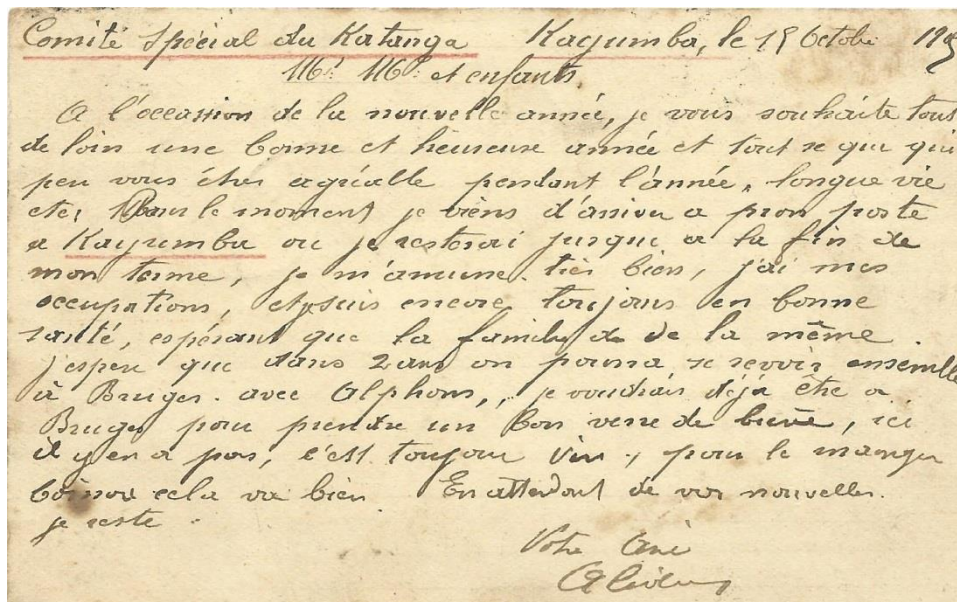 Comité Spécial du Katanga Kayumba, le 15 Octobr 190
Mr Me et enfants
A l'occasion de la nouvelle année, je vous souhaite tout
de loin une bonne et heureuse année et tout se que qui
peu vous être agréable pendant l'année, longue vie
etc, le moment je viens d'arriver a mon poste
a Kayumba ou je resterai jusque a la fin de
mon terme, je m'amuse très bien, j'ai mes
occupations, et suis encore toujours en bonne
santé, espérant que la famille de même
j'espere que dans 2 ans on pourra se revoir ensemble
à Bruges. avec Alphons, je voudrais déjà être a
Bruges pour prendre un bon verre de bière, ici
il y en a pas, c'est toujour vin, pour le manger
cela va bien En attendant de vos nouvelles.
je reste.
Votre Ami